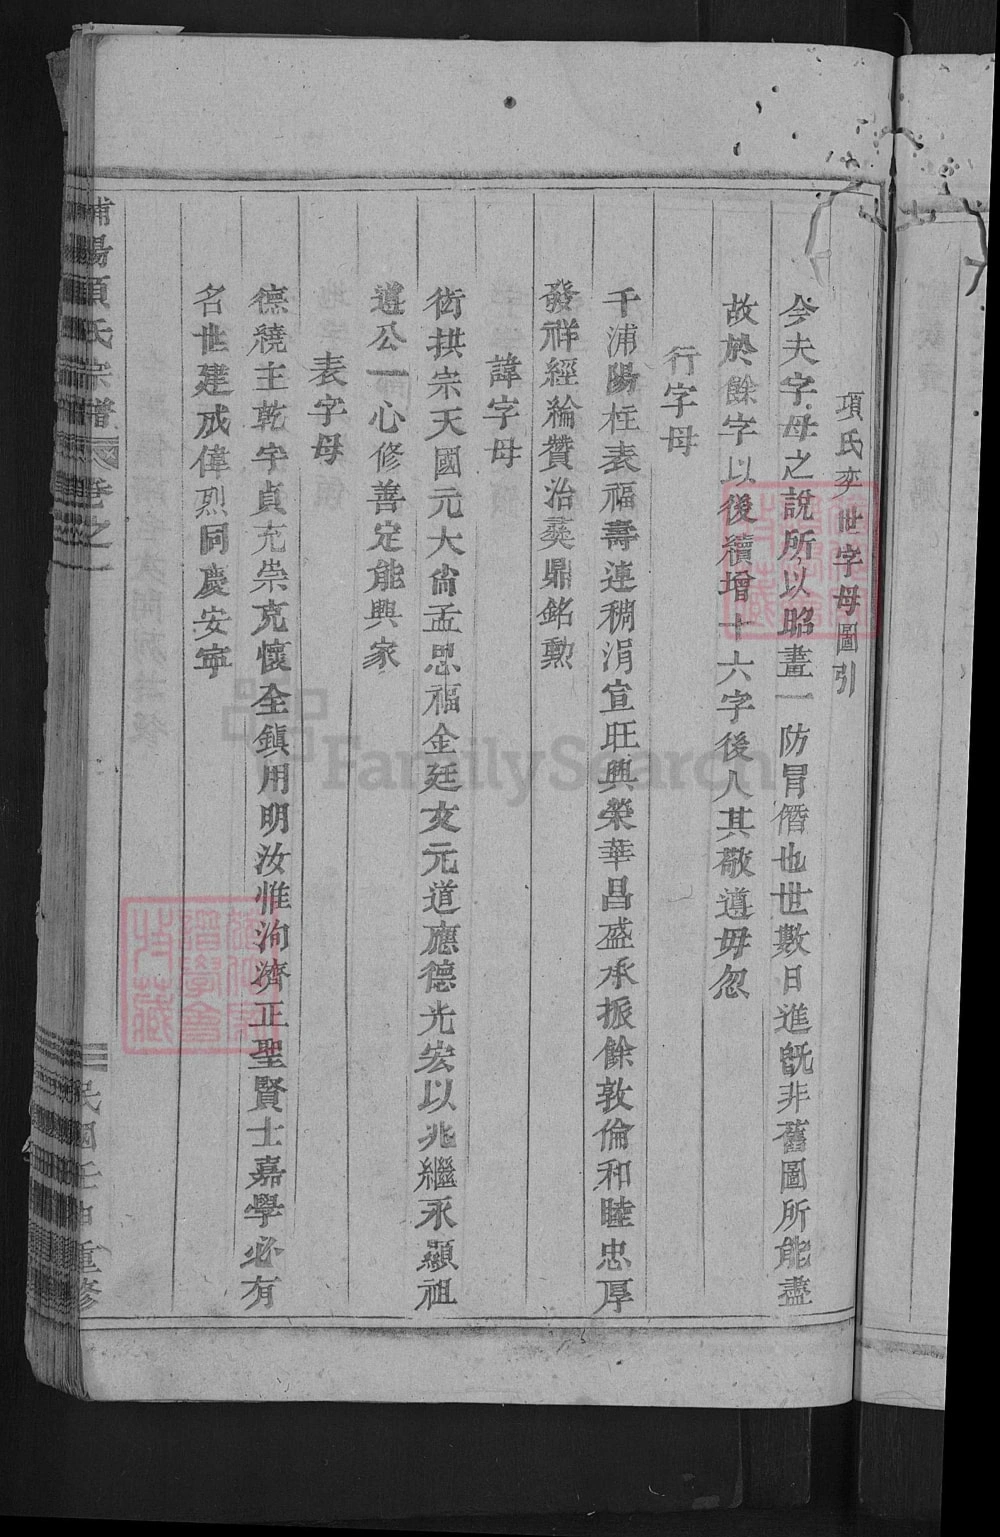 項氏奕世字母圖引
今夫字母之說所以昭畫一防冒僭也世數日進既非舊圖所能盡
故於餘字以後續增十六字後人其敬遵毋忽
行字母
千浦陽枉表福壽連稠涓宣旺興榮華昌盛承振餘敦倫和睦忠厚
發祥經綸贊治彞鼎銘勲
諱字母
街拱宗天國元大尙孟思福金廷文元道應德光宏以兆繼永顯祖
遵公一心修善定能興家
表字母
德繞主乾宇貞充崇克懷全鎮用明汝惟洵濟正聖賢士嘉學必有
名世建成偉烈同慶安寧
浦陽項氏宗譜 卷之一 民國壬申重修
FamilySearch